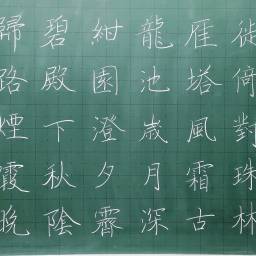 徙倚對珠林
雁塔風霜古
龍池歲月深
紺園澄夕霽
碧殿下秋陰
歸路煙霞晚